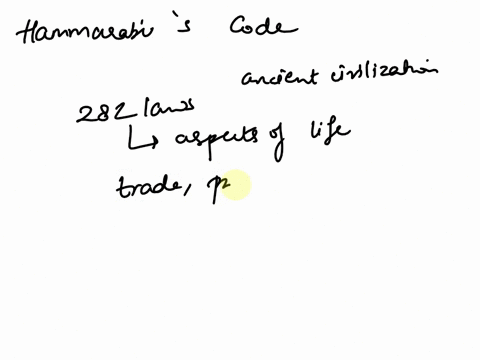 Hammarabi's Code
ancient civilization
282 laws
↳ aspects of life
trade, p